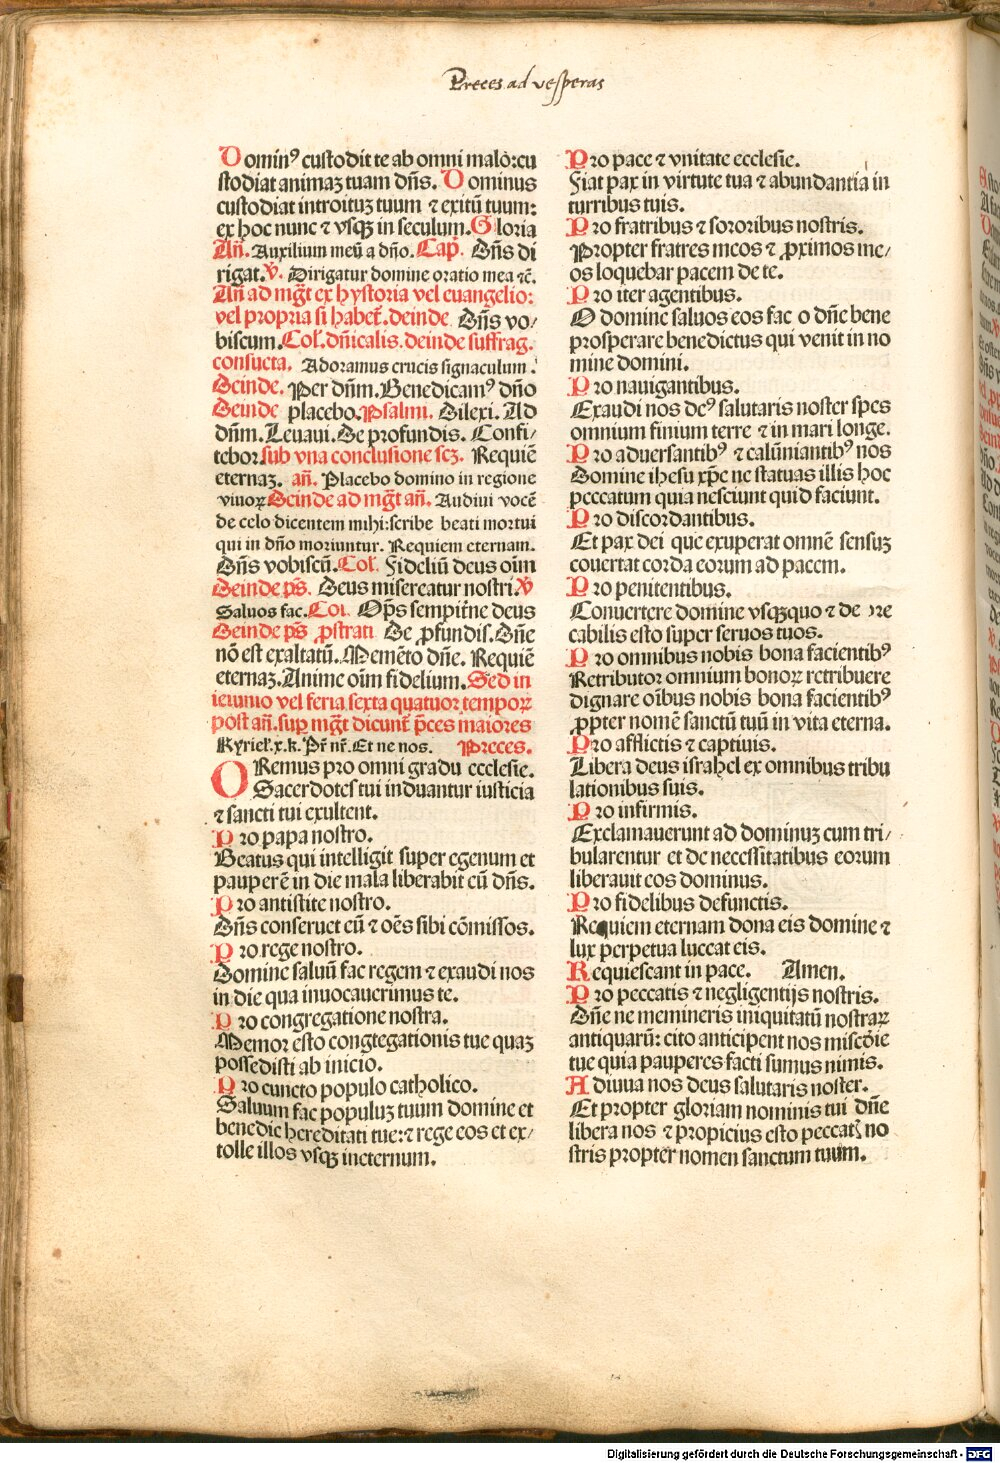 Preces ad vesperas
Dominꝰ custodit te ab omni malo: cu
stodiat animaʒ tuam dn̄s. Dominus
custodiat introituʒ tuum ⁊ exitū tuum:
ex hoc nunc ⁊ vsqʒ in seculum. Gloria
Añ. Auxilium meū a dn̄o. Cap̄. Dn̄s di
rigat. V̄. Dirigatur domine oratio mea ⁊c̄.
Añ ad mgt̄ ex hystoria vel euangelio:
vel propria si habet̄. deinde Dn̄s vo/
biscum. Col̄. dn̄icalis. deinde suffrag.
consueta. Adoramus crucis signaculum.
Deinde. Per dn̄m. Benedicamꝰ dn̄o
Deinde placebo. Psalmi. Dilexi. Ad
dn̄m. Leuaui. De profundis. Confi/
tebor. sub vna conclusione scʒ. Requiē
eternaʒ. añ. Placebo domino in regione
viuoꝝ Deinde ad mgt̄ añ. Audiui vocē
de celo dicentem mihi: scribe beati mortui
qui in dn̄o moriuntur. Requiem eternam.
Dn̄s vobiscū. Col̄. Fideliū deus oīm
Deinde ps̄. Deus misereatur nostri. V̄
Saluos fac. Col̄. Op̄s sempit̄ne deus
Deinde ps̄ ꝓstrati De ꝓfundis. Dn̄e
nō est exaltatū. Memēto dn̄e. Requiē
eternaʒ. Anime oīm fidelium. Sed in
ieiunio vel feria sexta quatuor tempoꝝ
post añ. sup̄ mgt̄ dicunt̄ p̄ces maiores
Kyriel̄. x. k. Pr̄ nr̄. Et ne nos. Preces.
ORemus pro omni gradu ecclesie.
Sacerdotes tui induantur iusticia
⁊ sancti tui exultent.
Pro papa nostro.
Beatus qui intelligit super egenum et
pauperē in die mala liberabit eū dn̄s.
Pro antistite nostro.
Dn̄s conseruet eū ⁊ oēs sibi cōmissos.
Pro rege nostro.
Domine saluū fac regem ⁊ exaudi nos
in die qua inuocauerimus te.
Pro congregatione nostra.
Memor esto congtegationis tue quaʒ
possedisti ab inicio.
Pro cuncto populo catholico.
Saluum fac populuʒ tuum domine et
benedic hereditati tue: ⁊ rege eos et ex/
tolle illos vsqʒ ineternum.
Pro pace ⁊ vnitate ecclesie.
Fiat pax in virtute tua ⁊ abundantia in
turribus tuis.
Pro fratribus ⁊ sororibus nostris.
Propter fratres meos ⁊ ꝓximos me/
os loquebar pacem de te.
Pro iter agentibus.
O domine saluos eos fac o dn̄e bene
prosperare benedictus qui venit in no
mine domini.
Pro nauigantibus.
Exaudi nos deꝰ salutaris noster spes
omnium finium terre ⁊ in mari longe.
Pro aduersantibꝰ ⁊ calūniantibꝰ nos
Domine ihesu xp̄e ne statuas illis hoc
peccatum quia nesciunt quid faciunt.
Pro discordantibus.
Et pax dei que exuperat omnē sensuʒ
couertat corda eorum ad pacem.
Pro penitentibus.
Conuertere domine vsqʒquo ⁊ de pre
cabilis esto super seruos tuos.
Pro omnibus nobis bona facientibꝰ
Retributor omnium bonoꝝ retribuere
dignare oībus nobis bona facientibꝰ
ꝓpter nomē sanctū tuū in vita eterna.
Pro afflictis ⁊ captiuis.
Libera deus israhel ex omnibus tribu
lationibus suis.
Pro infirmis.
Exclamauerunt ad dominuʒ cum tri/
bularentur et de necessitatibus eorum
liberauit eos dominus.
Pro fidelibus defunctis.
Requiem eternam dona eis domine ⁊
lux perpetua luceat eis.
Requiescant in pace. Amen.
Pro peccatis ⁊ negligentijs nostris.
Dn̄e ne memineris iniquitatū nostraꝝ
antiquarū: cito anticipent nos misc̄die
tue quia pauperes facti sumus nimis.
Adiuua nos deus salutaris noster.
Et propter gloriam nominis tui dn̄e
libera nos ⁊ propicius esto peccatꝭ no
stris propter nomen sanctum tuum.
Digitalisierung gefördert durch die Deutsche Forschungsgemeinschaft - DFG